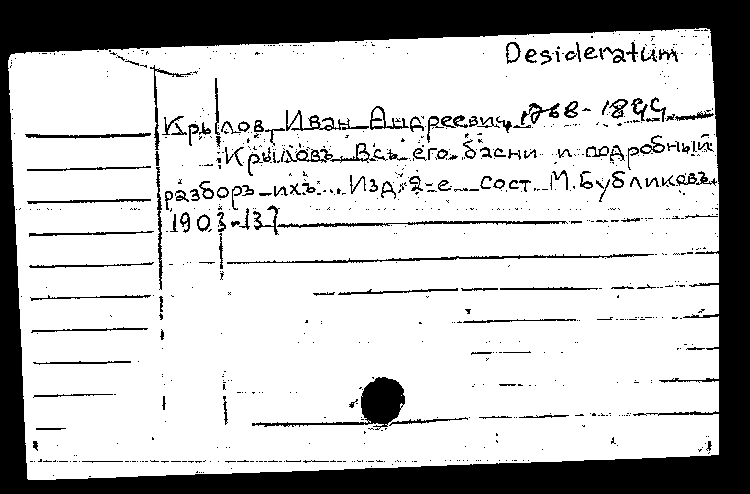 Desideratum
Крылов, Иван Андреевич, 1768-1844
Крыловъ. Всѣ его басни и подробный
разборъ ихъ... Изд. 2-е сост. М. Бубликовъ.
1903-137